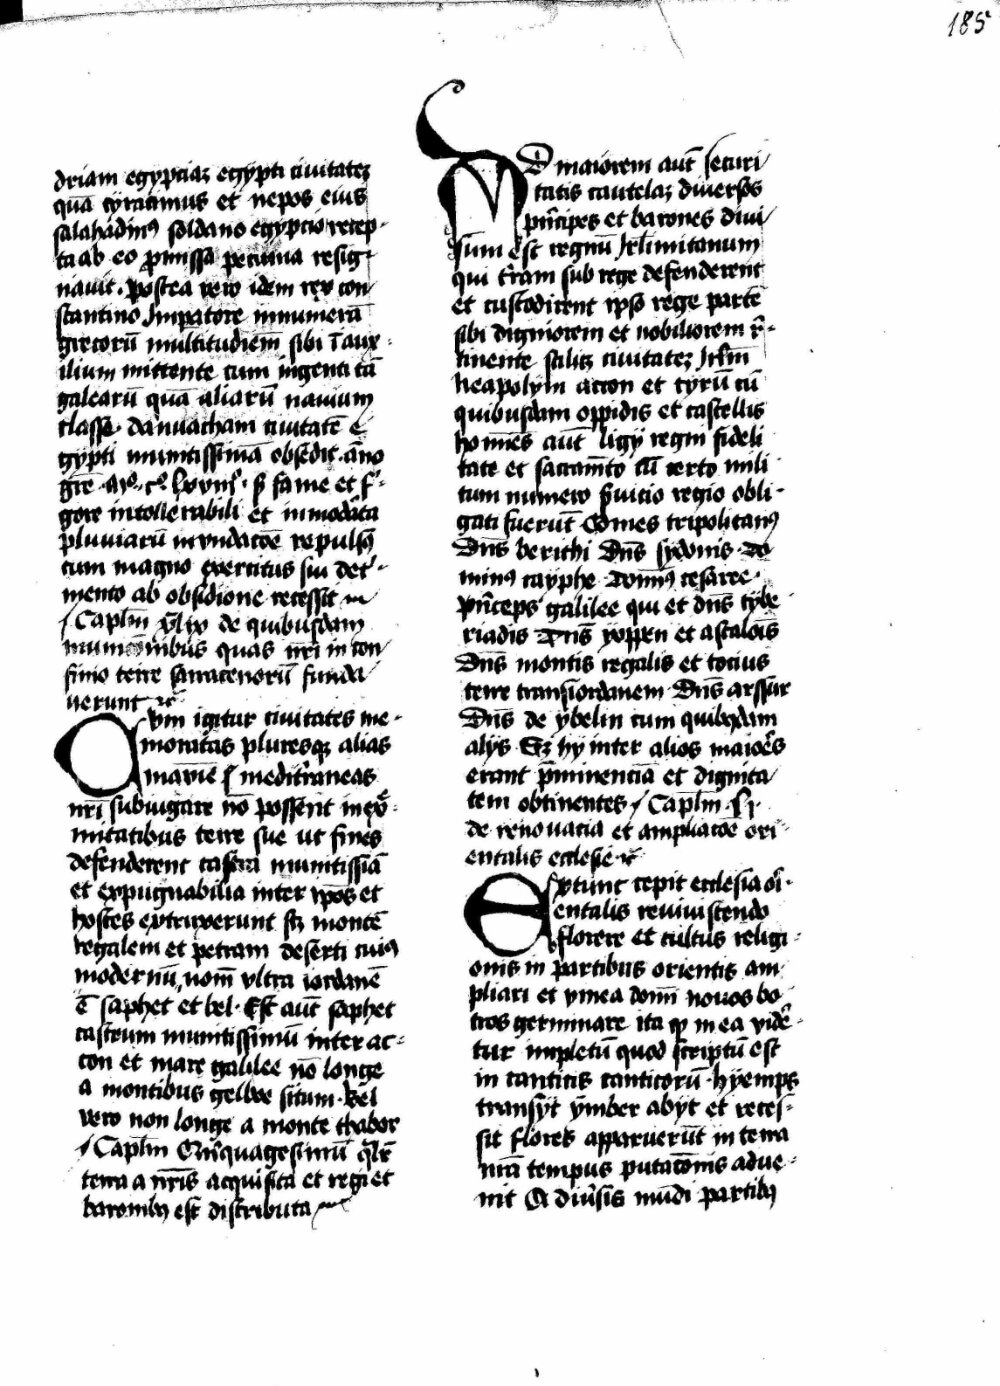 185
driam egypciaz egypti ciuitatez
quā syracunus et nepos eius
salahadinꝰ soldano egyptio recep-
ta ab eo p̄missa pecunia resig-
nauit. postea vero idem rex con
stantino Impatore innumerā
grecorū multitudiēm sibi ī aux-
ilium mittente cum ingenti tā
galearū quā aliarū nauium
classe. damiatham ciuitatē e
gypti munitissimā obsedit. āno
gre . fame et f-
gore intollerabili et inmodāta
pluuiarū inundacōe repulsꝰ
cum magno exercitus sui det-
mento ab obsidione recessit
Caplm xlix de quibusdam
municōnibus quas nr̄i in con
finio terre sarracenorū funda
uerunt rc̄
Cvm igitur ciuitates me-
moratas pluresqꝫ alias
mediťraneas
nr̄i subiugare nō possent in ex̄-
mitatibus terre sue ut fines
defenderent castra munitissīa
et expugnabilia inter xp̄os et
hostes extruxerunt scꝫ montē
regalem et petram deserti cuiꝰ
modernū nom̄ vltra iordanē
ē saphet et bel. Est aut̄ saphet
castrum munitissimū inter ac-
con et mare galilee nō longe
a montibus gelboe situm. Bel
vero non longe a monte thabor
Caplm Quīquagesimū qlr̄
terra a nr̄is acquisita et regi et
baronibꝫ est distributa
AD maiorem aut̄ securi
tatis cautelaꝫ diuersos
pn̄cipes et barones diui
sum est regnū Jrl̄imitanum
qui tr̄ram sub rege defenderent
et custodirent ip̄o rege partē
sibi digniorem et nobiliorem r̄-
tinente scilicꝫ ciuitateꝫ Jrl̄m
neapolym accon et tyrū cū
quibusdam oppidis et castellis
homines aut̄ ligij regni fideli
tate et sacram̄to cū certo mili
tum numero s̄uitio regio obli-
gati fuerūt Comes tripolitanꝰ
Dn̄s berithi Dn̄s sydonis. Do
minꝰ cayphe. Domn̄s cesaree.
Pn̄ceps galilee qui et dn̄s tybe
riadis Dn̄s yoppen et ascalois
Dn̄s montis regalis et tocius
terre transiordanem. Dn̄s arssur
Dn̄s de ybelin cum quibꝰdam
alijs Sꝫ hij inter alios maiorēs
erant p̄minenciā et dignita
tem obtinentes Caplm. Lj.
de renouatia et ampliacōe ori-
entalis ecclesie rc̄
Extunc cepit ecclesia orī-
entalis reuiuiscendo
florere et cultus religi-
onis in partibus orientis am
pliari et vinea domī nouos bo
tros germinare ita qꝫ in ea vidē-
tur impletū quod scriptū est
in canticis canticorū. hyemps
transijt ymber abijt et reces-
sit flores apparuerūt in terra
nrā tempus putacōnis adue-
nit A diūsis mūdi partibꝫ